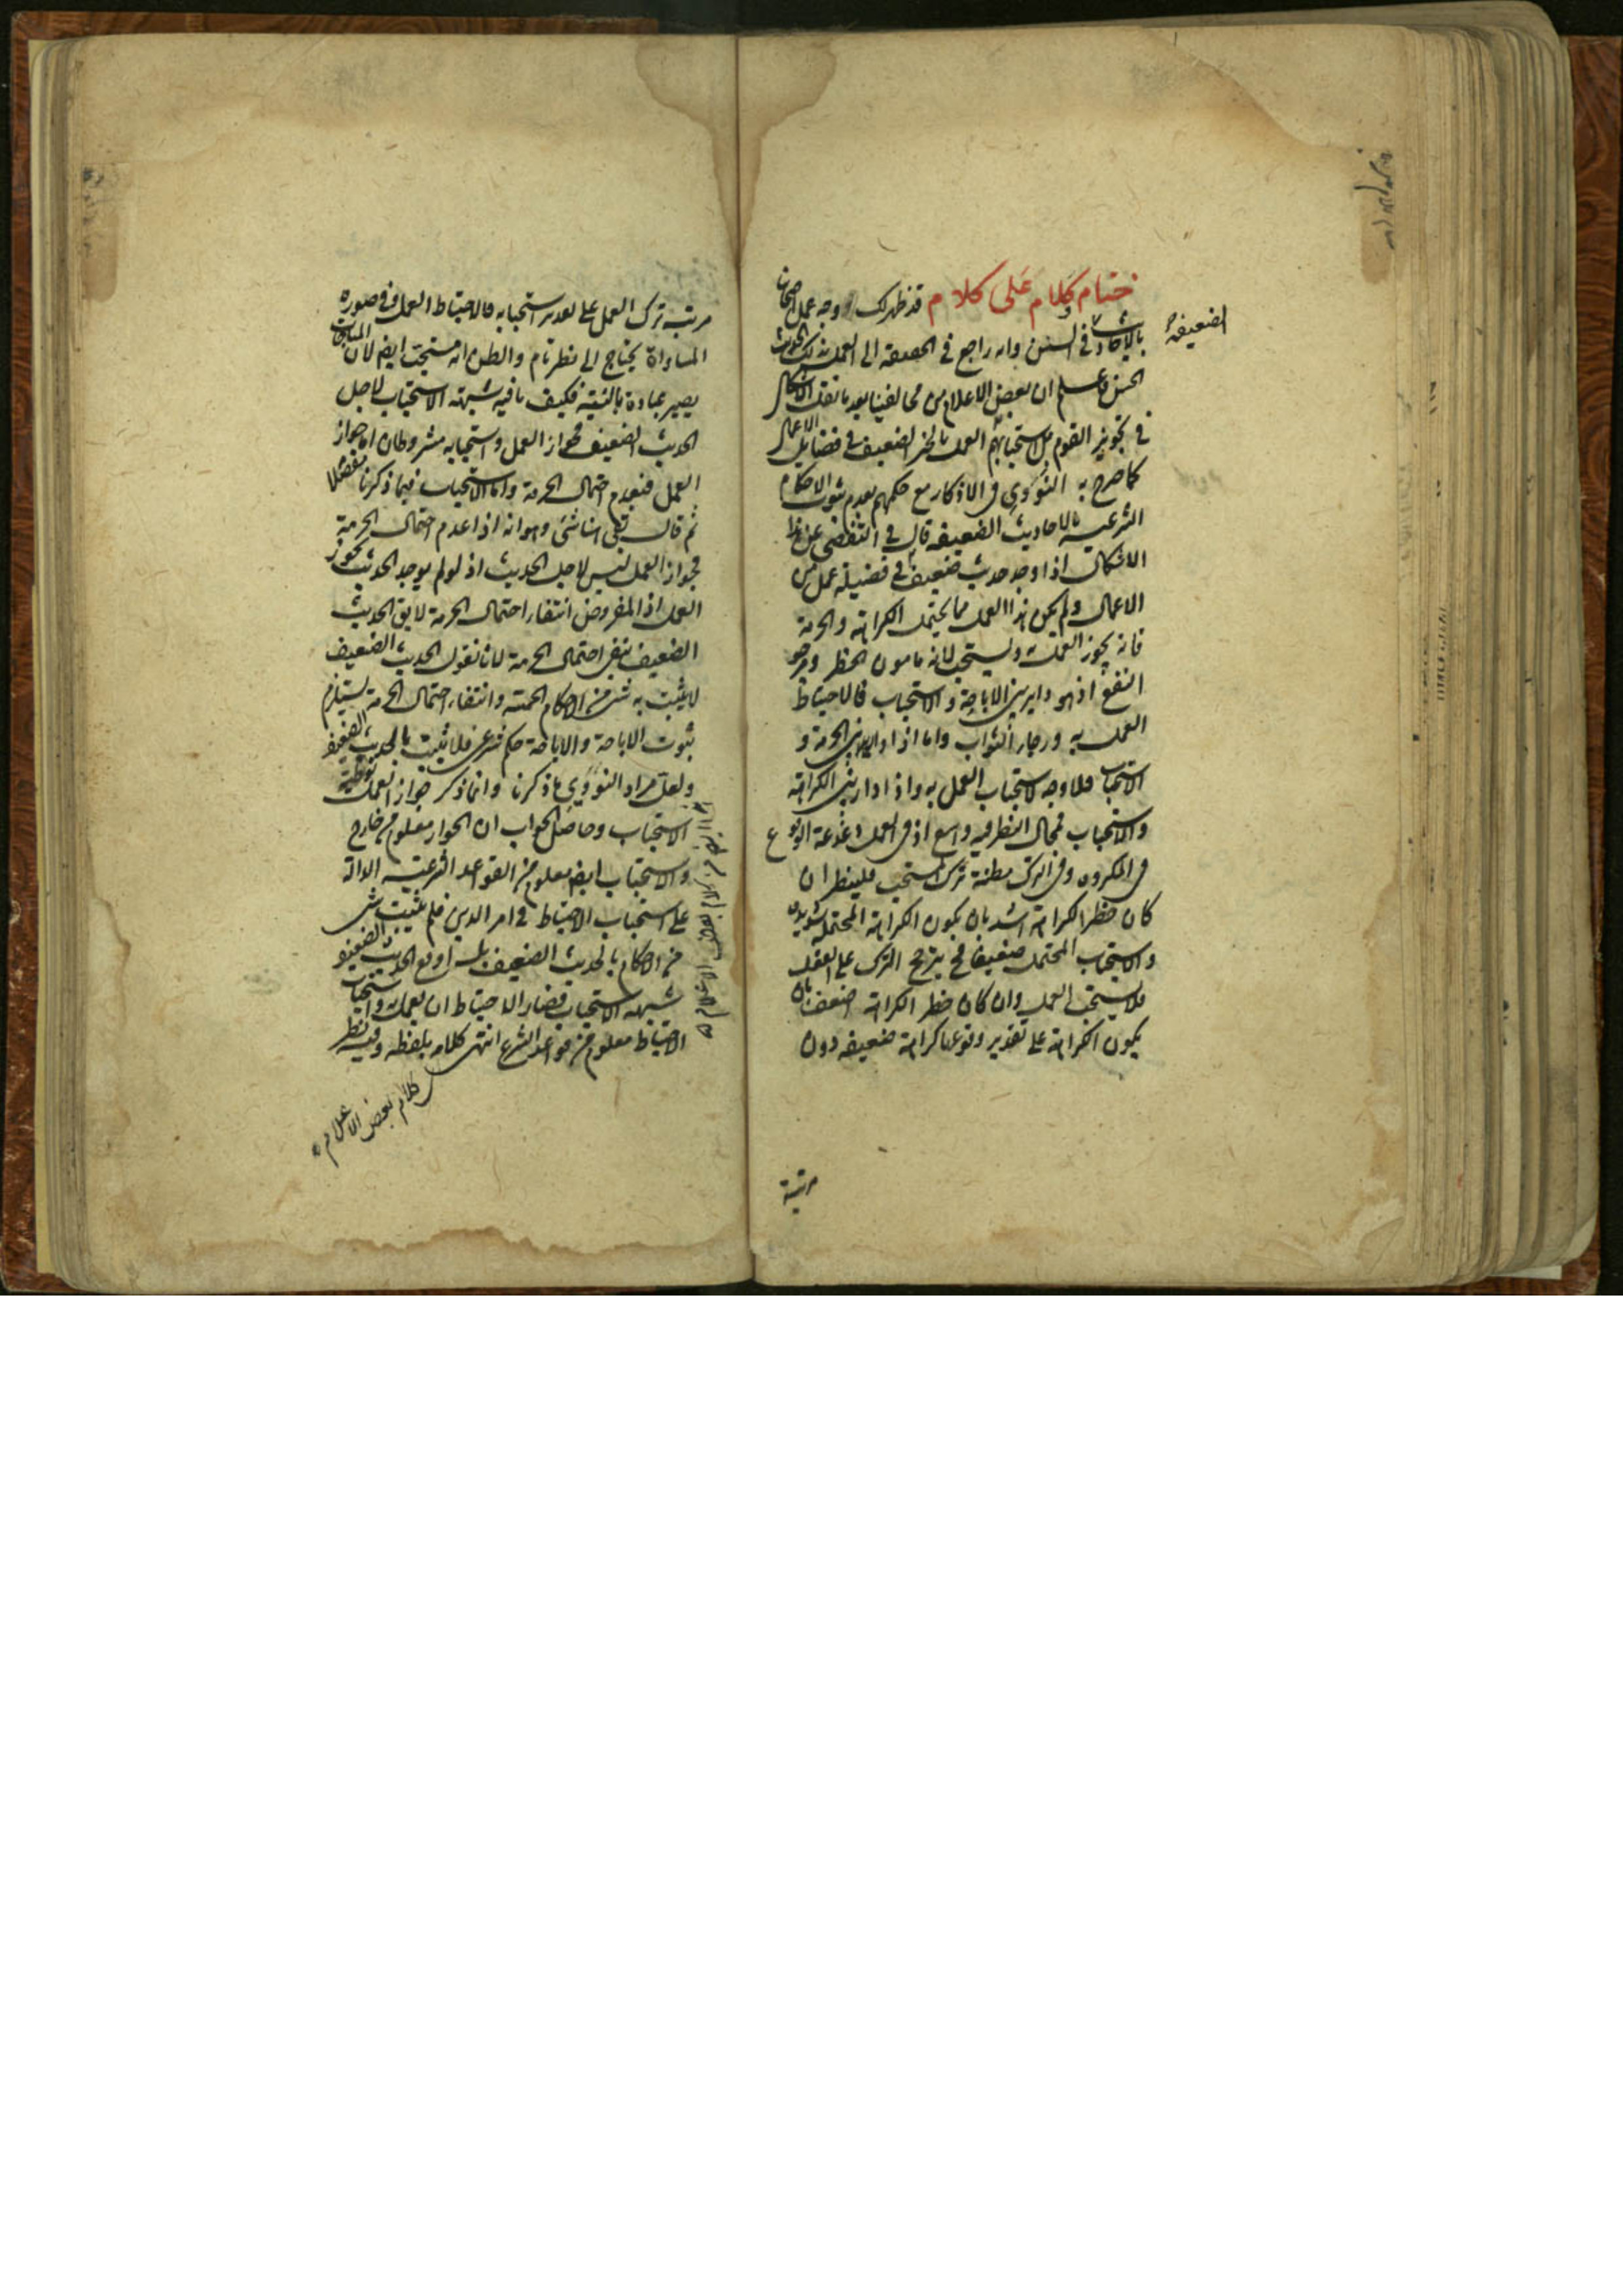 ختام كلام على كلام قد ظهر لك وجه عمل اصحابنا
بالاحاديث الضعيفة في السنن وانه راجع في الحقيقة الى العمل بذلك الحديث
الحسن واعلم ان بعض الاعلام من مخالفينا بعد ما نقل الاشكال
في تجويز القوم بل استحبابهم العمل بالخبر الضعيف في فضايل الاعمال
كما صرح به النووي في الاذكار مع حكمهم بعدم ثبوت الاحكام
الشرعية بالاحاديث الضعيفة قال في التفصي عن هذا
الاشكال اذا وجد حديث ضعيف في فضيلة عمل من
الاعمال ولم يكن هذا العمل مما يحتمل الكراهة والحرمة
فانه يجوز العمل به ويستحب لانه مامون الخطر ومرجو
النفع اذ هو داير بين الاباحة والاستحباب فالاحتياط
العمل به ورجاء الثواب واما اذا دار بين الحرمة و
الاستحباب فلا وجه لاستحباب العمل به واذا دار بين الكراهة
والاستحباب فمجال النظر فيه واسع اذ في العمل دغدغة الوقوع
في المكروه وفي الترك مظنة ترك المستحب فلينظر ان
كان خطر الكراهة اشد بان يكون الكراهة المحتملة شديدة
والاستحباب المحتمل ضعيفا فح يترجح الترك على العقل
فلا يستحب العمل وان كان خطر الكراهة اضعف بان
يكون الكراهة على تقدير وقوعها كراهة ضعيفة دون
مرتبة
مرتبة ترك العمل على تقدير استحبابه فالاحتياط العمل وفي صورة
المساواة يحتاج الى نظر تام والظن انه مستحب ايضا لان المباحات
يصير عبادة بالنية فكيف ما فيه شبهة الاستحباب لاجل
الحديث الضعيف فجواز العمل واستحبابه مشروطان اما جواز
العمل فبعدم احتمال الحرمة واما الاستحباب فبما ذكرنا مفصلا
ثم قال بقي هنا شئ وهو انه اذا عدم احتمال الحرمة
فجواز العمل ليس لاجل الحديث اذ لو لم يوجد الحديث يجوز
العمل اذ المفروض انتفاء احتمال الحرمة لا يق الحديث
الضعيف ينفي احتمال الحرمة لانا نقول الحديث الضعيف
لا يثبت به شئ من الاحكام الخمسة وانتفاء احتمال الحرمة يستلزم
ثبوت الاباحة والاباحة حكم شرعي فلا يثبت بالحديث الضعيف
ولعل مراد النووي ما ذكرنا وانما ذكر جواز العمل توطئة
الاستحباب وحاصل الجواب ان الجواز معلوم من خارج
والاستحباب ايضا معلوم من القواعد الشرعية الدالة
على استحباب الاحتياط في امر الدين فلم يثبت شئ
من الاحكام بالحديث الضعيف بل اوقع الحديث الضعيف
شبهة الاستحباب فصار الاحتياط ان يعمل به واستحباب
الاحتياط معلوم من قواعد الشرع انتهى كلامه بلفظه وفيه نظر
كلام بعض الاعلام